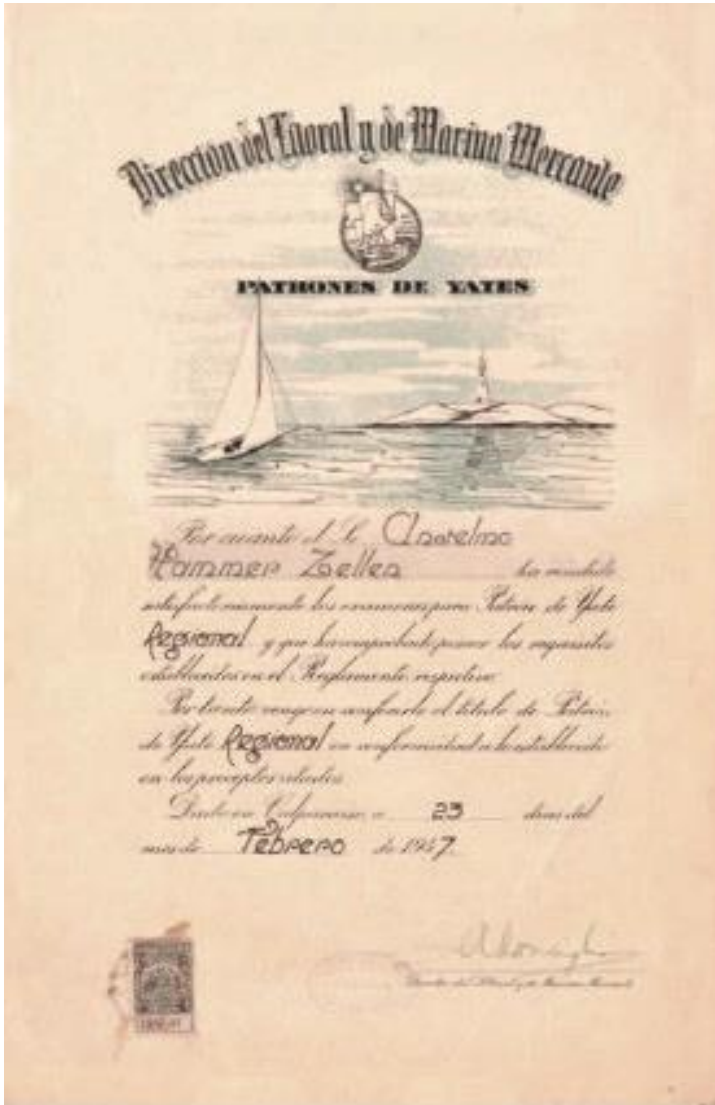 Direccion del Litoral y de Marina Mercante
PATRONES DE YATES
Por cuanto el Sr. Anselmo
Hammer Zeller ha rendido
satisfactoriamente los examenes para Patron de Yate
Regional y que ha comprobado poseer los requisitos
establecidos en el Reglamento respectivo
Por tanto vengo en conferirle el titulo de Patron
de Yate Regional en conformidad a lo establecido
en los preceptos citados
Dado en Valparaiso a 23 dias del
mes de Febrero de 1947.
Director del Litoral y de Marina Mercante